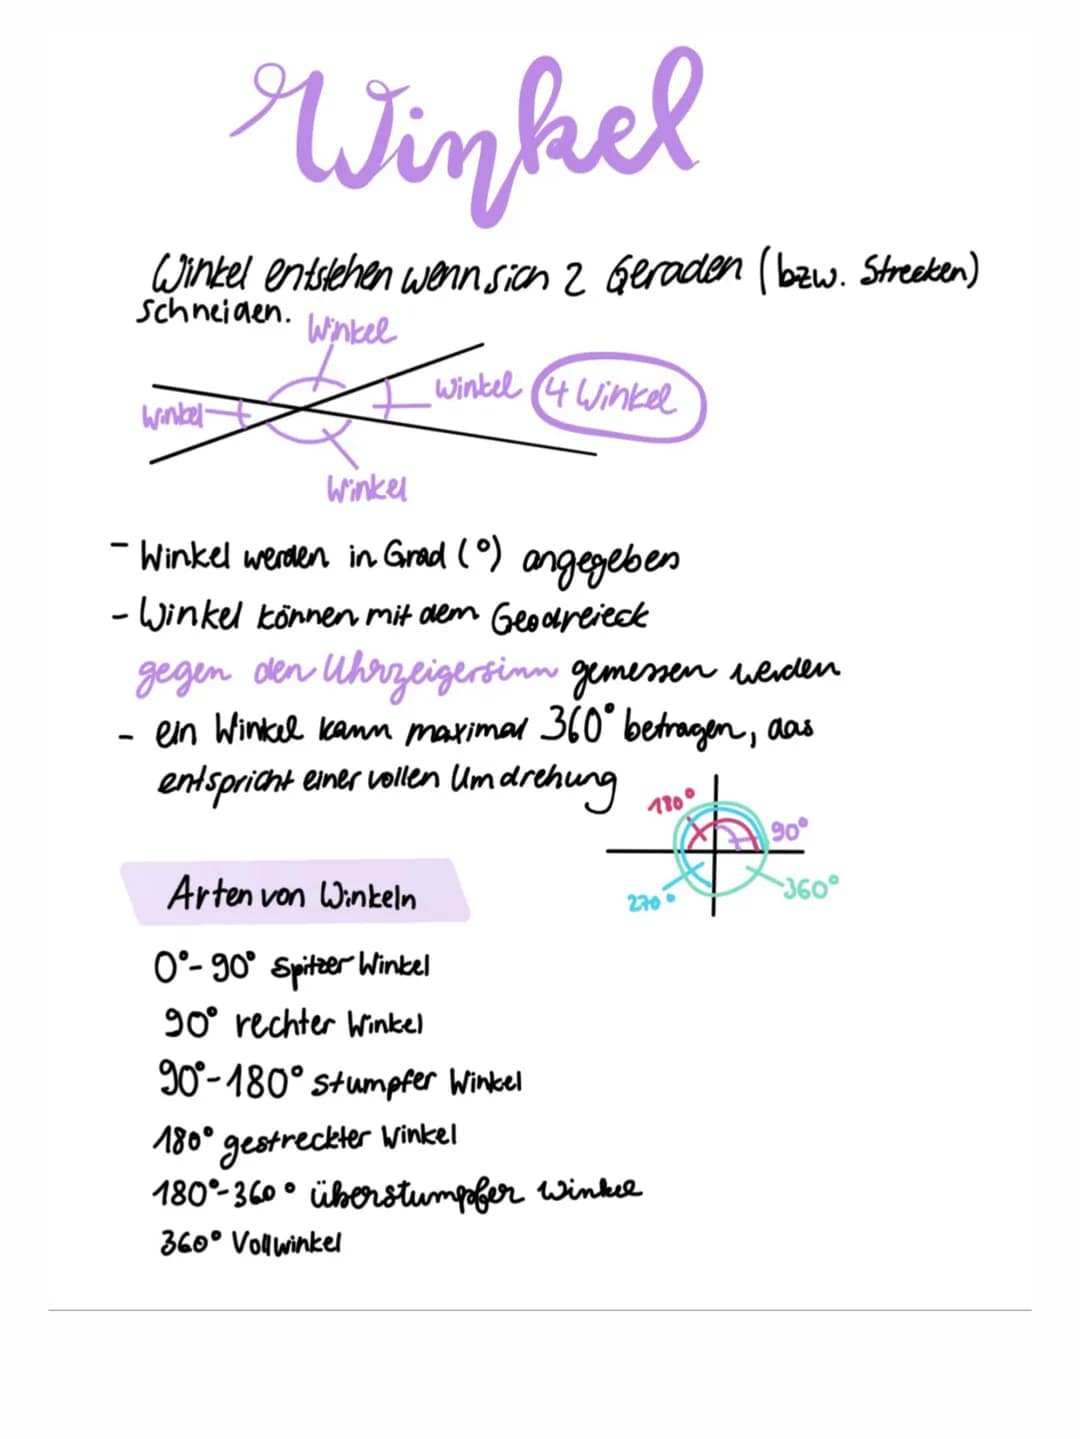 Winkel
Winkel entstehen wenn sich 2 Geraden (bzw. Strecken)
schneiden.
Winkel
Winkel
4 Winkel
Winkel
Winkel
- Winkel werden in Grad (°) angegeben
- Winkel können mit dem Geodreieck
gegen den Uhrzeigersinn gemessen werden
- ein Winkel kann maximal 360° betragen, das
entspricht einer vollen Umdrehung
180°
90°
360°
270°
Arten von Winkeln
0°-90° spitzer Winkel
90° rechter Winkel
90°-180° stumpfer Winkel
180° gestreckter Winkel
180°-360° überstumpfer Winkel
360° Vollwinkel